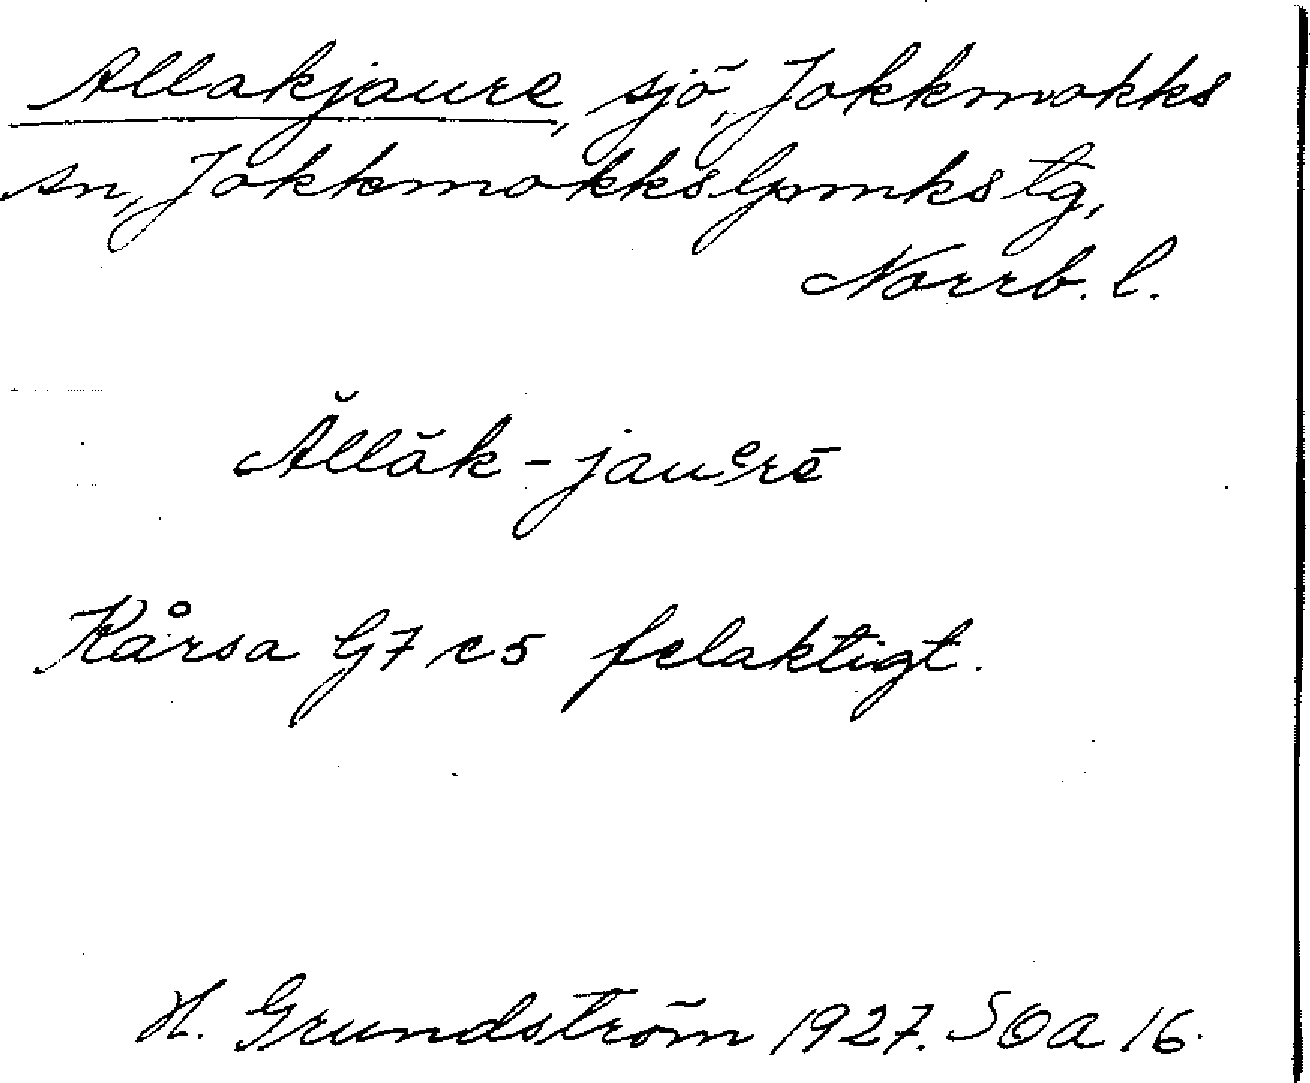 Allakjaure, sjö, Jokkmokks
sn, Jokkmokks lpmks tg,
Norrb. l.
Ăllăk-jauᵉrē
Kårsa G7 c5 felaktigt.
H. Grundström 1927. SOA 16.